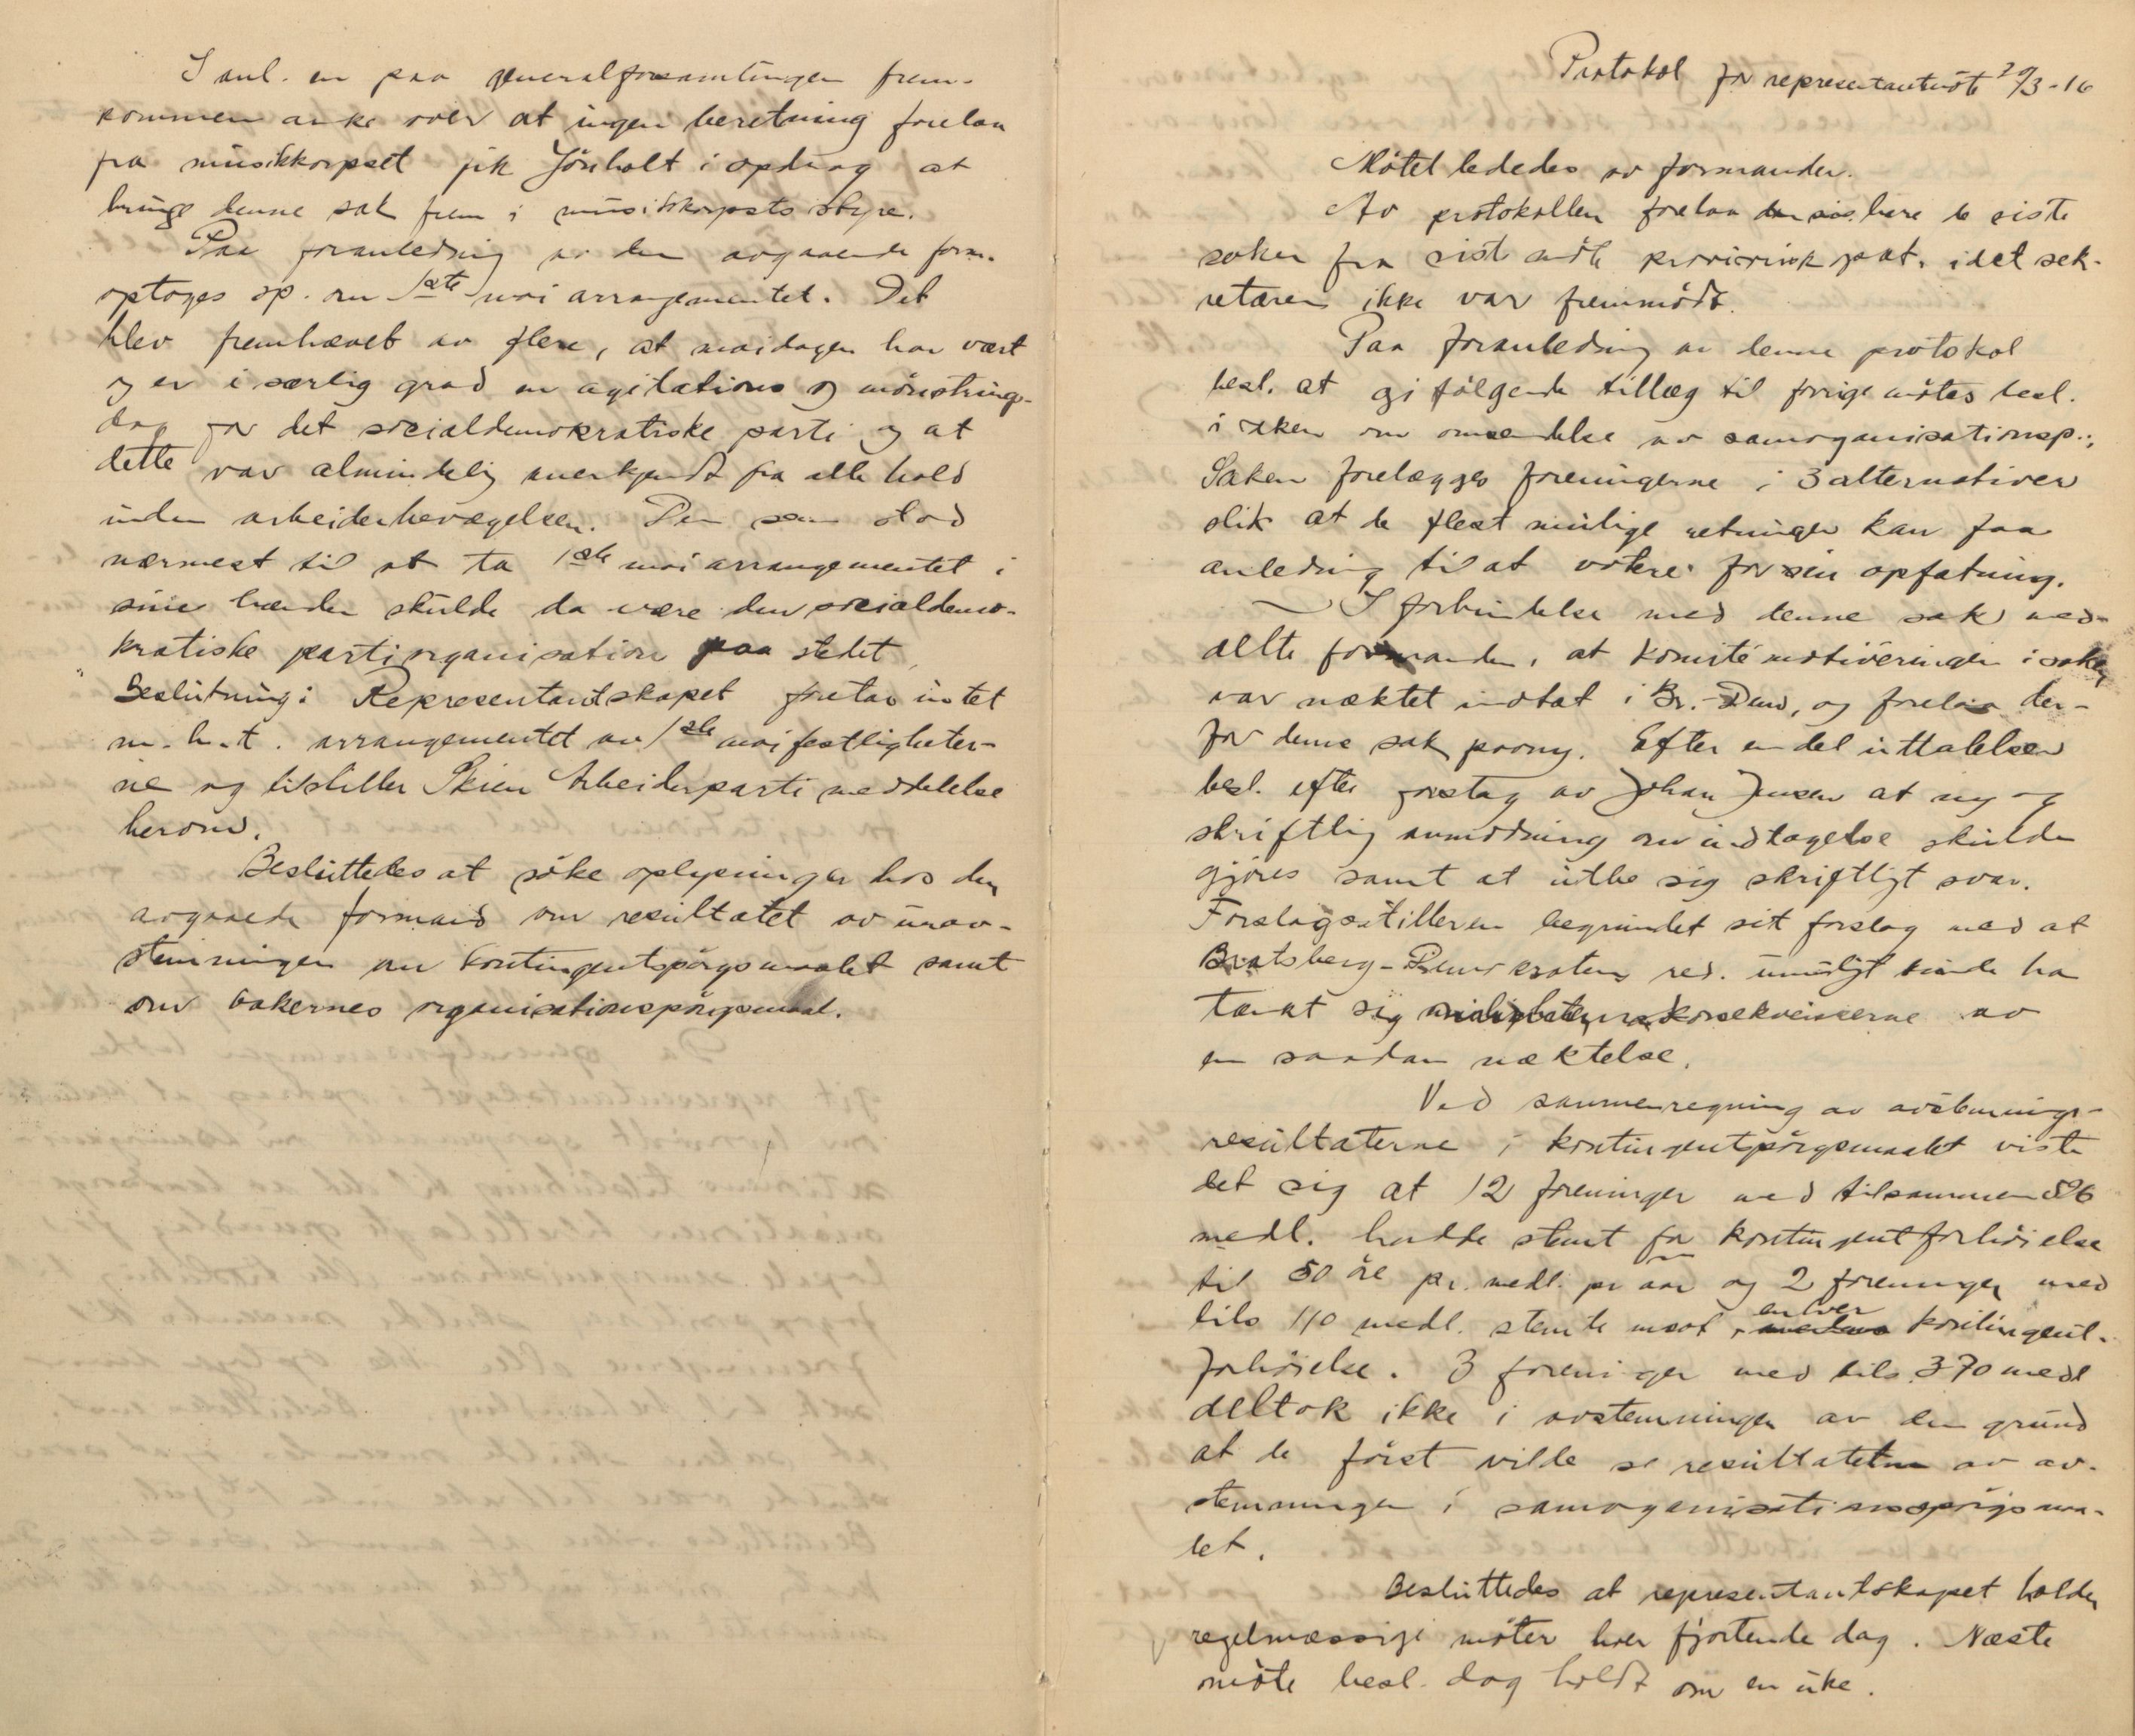 I anl. en paa generalforsamlingen frem-
kommen anke over at ingen beretning forelaa
fra musikkorpset fik Jönholt i opdrag at
bringe denne sak frem i musikkorpsets styre.
Paa foranledning av den avgaaende form.
optoges sp. om 1ste mai arrangementet. Det
blev fremhævet av flere, at maidagen har vært
og er i særlig grad en agitations og mönstrings-
dag for det socialdemokratiske parti og at
dette var almindelig anerkjendt fra alle hold
inden arbeiderbevægelsen. Den som stod
nærmest til at ta 1ste mai arrangementet i
sine hænder skulde da være den socialdemo-
kratiske partiorganisation paa stedet
Beslutning: Representantskapet foretar intet
m.h.t. arrangementet av 1ste maifestligheter-
ne og tilstiller Skien Arbeiderparti meddelelse
herom.
Besluttedes at söke oplysninger hos den
avgaaede formand om resultatet av urav-
stemningen om kontingentspörgsmaalet samt
om bakernes organisationspörgsmaal.
Protokol for representantmöte 29/3-16
Mötet lededes av formanden.
Av protokollen forelaa bare de siste
saker fra sist möte idet sek-
retæren ikke var fremmödt.
Paa foranledning av denne protokol
besl. at gi fölgende tillæg til forrige mötes besl.
i saken om omsendelse av samorganisationsp.:
Saken forelægges foreningerne i 3 alternativer
slik at de flest mulige retninger kan faa
anledning til at votere for sin opfatning.
I forbindelse med denne sak med-
delte formanden, at komitémotiveringen i saken
var nægtet indtat i Br.-Dem, og forelaa der-
for denne sak paany. Efter en del uttalelser
besl. efter forslag av Johan Jensen at ny og
skriftlig anmodning om indtagelse skulde
gjöres samt at utbe sig skriftligt svar.
Forslagsstilleren begrundet sit forslag med at
Bratsberg-Demokratens red. umuligt kunde ha
tænkt sig konsekvenserne av
en saadan næktelse.
Ved sammenregning av avstemnings-
resultaterne i kontingentspörgsmaalet viste
det sig at 12 foreninger med tilsammen 826
medl. hadde stemt for kontingentforhöielse
til 50 öre pr. medl. pr aar og 2 foreninger med
tils 110 medl. stemte mot enhver kontingent-
forhöielse. 3 foreninger med tils. 370 medl
deltok ikke i avstemningen av den grund
at de först vilde se resultatet av av-
stemningen i samorganisationsspörgsmaa-
let.
Besluttedes at representantskapet holder
regelmæssige möter hver fjortende dag. Næste
möte besl. dog holdt om en uke.